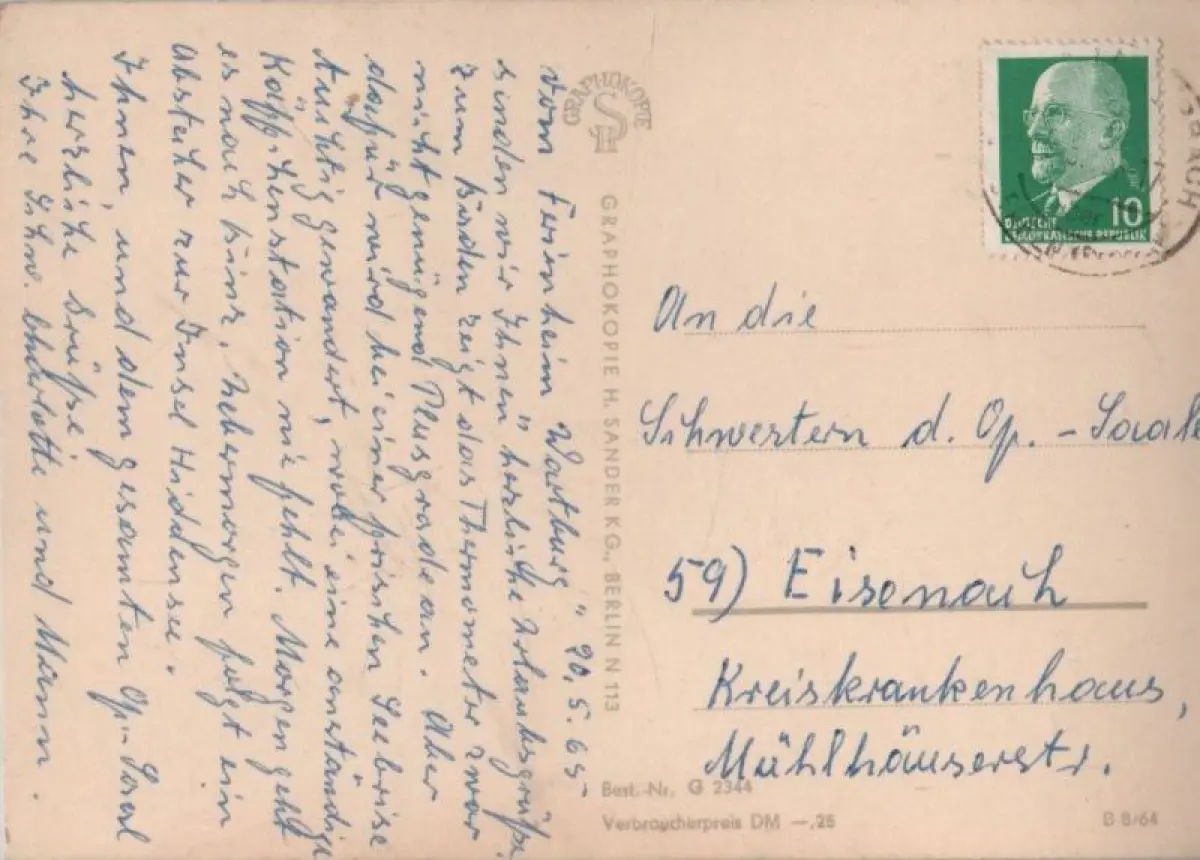 Vom Ferienheim „Wartburg" 20.5.65.
senden wir Ihnen herzliche Urlaubsgrüße,
zum Baden zeigt das Thermometer zwar
nicht genügend Plusgrade an. Aber
dafür wird bei einer frischen Seebrise
tüchtig gewandert, wobei eine anständige
Käppchenstation nie fehlt. Morgen geht
es nach Binz, übermorgen folgt ein
Abstecher zur Insel Hiddensee.
Ihnen, und dem gesamten Op-Saal
herzliche Grüße
Ihre Schw. Charlotte und Mann.
GRAPHOKOPIE
GRAPHOKOPIE H. SANDER K.G., BERLIN N 113
10
DEUTSCHE
DEMOKRATISCHE REPUBLIK
An die
Schwestern d. Op.-Saale
59) Eisenach
Kreiskrankenhaus,
Mühlhäuserstr.
Best.-Nr. G 2344
Verbraucherpreis DM —,25
B 8/64